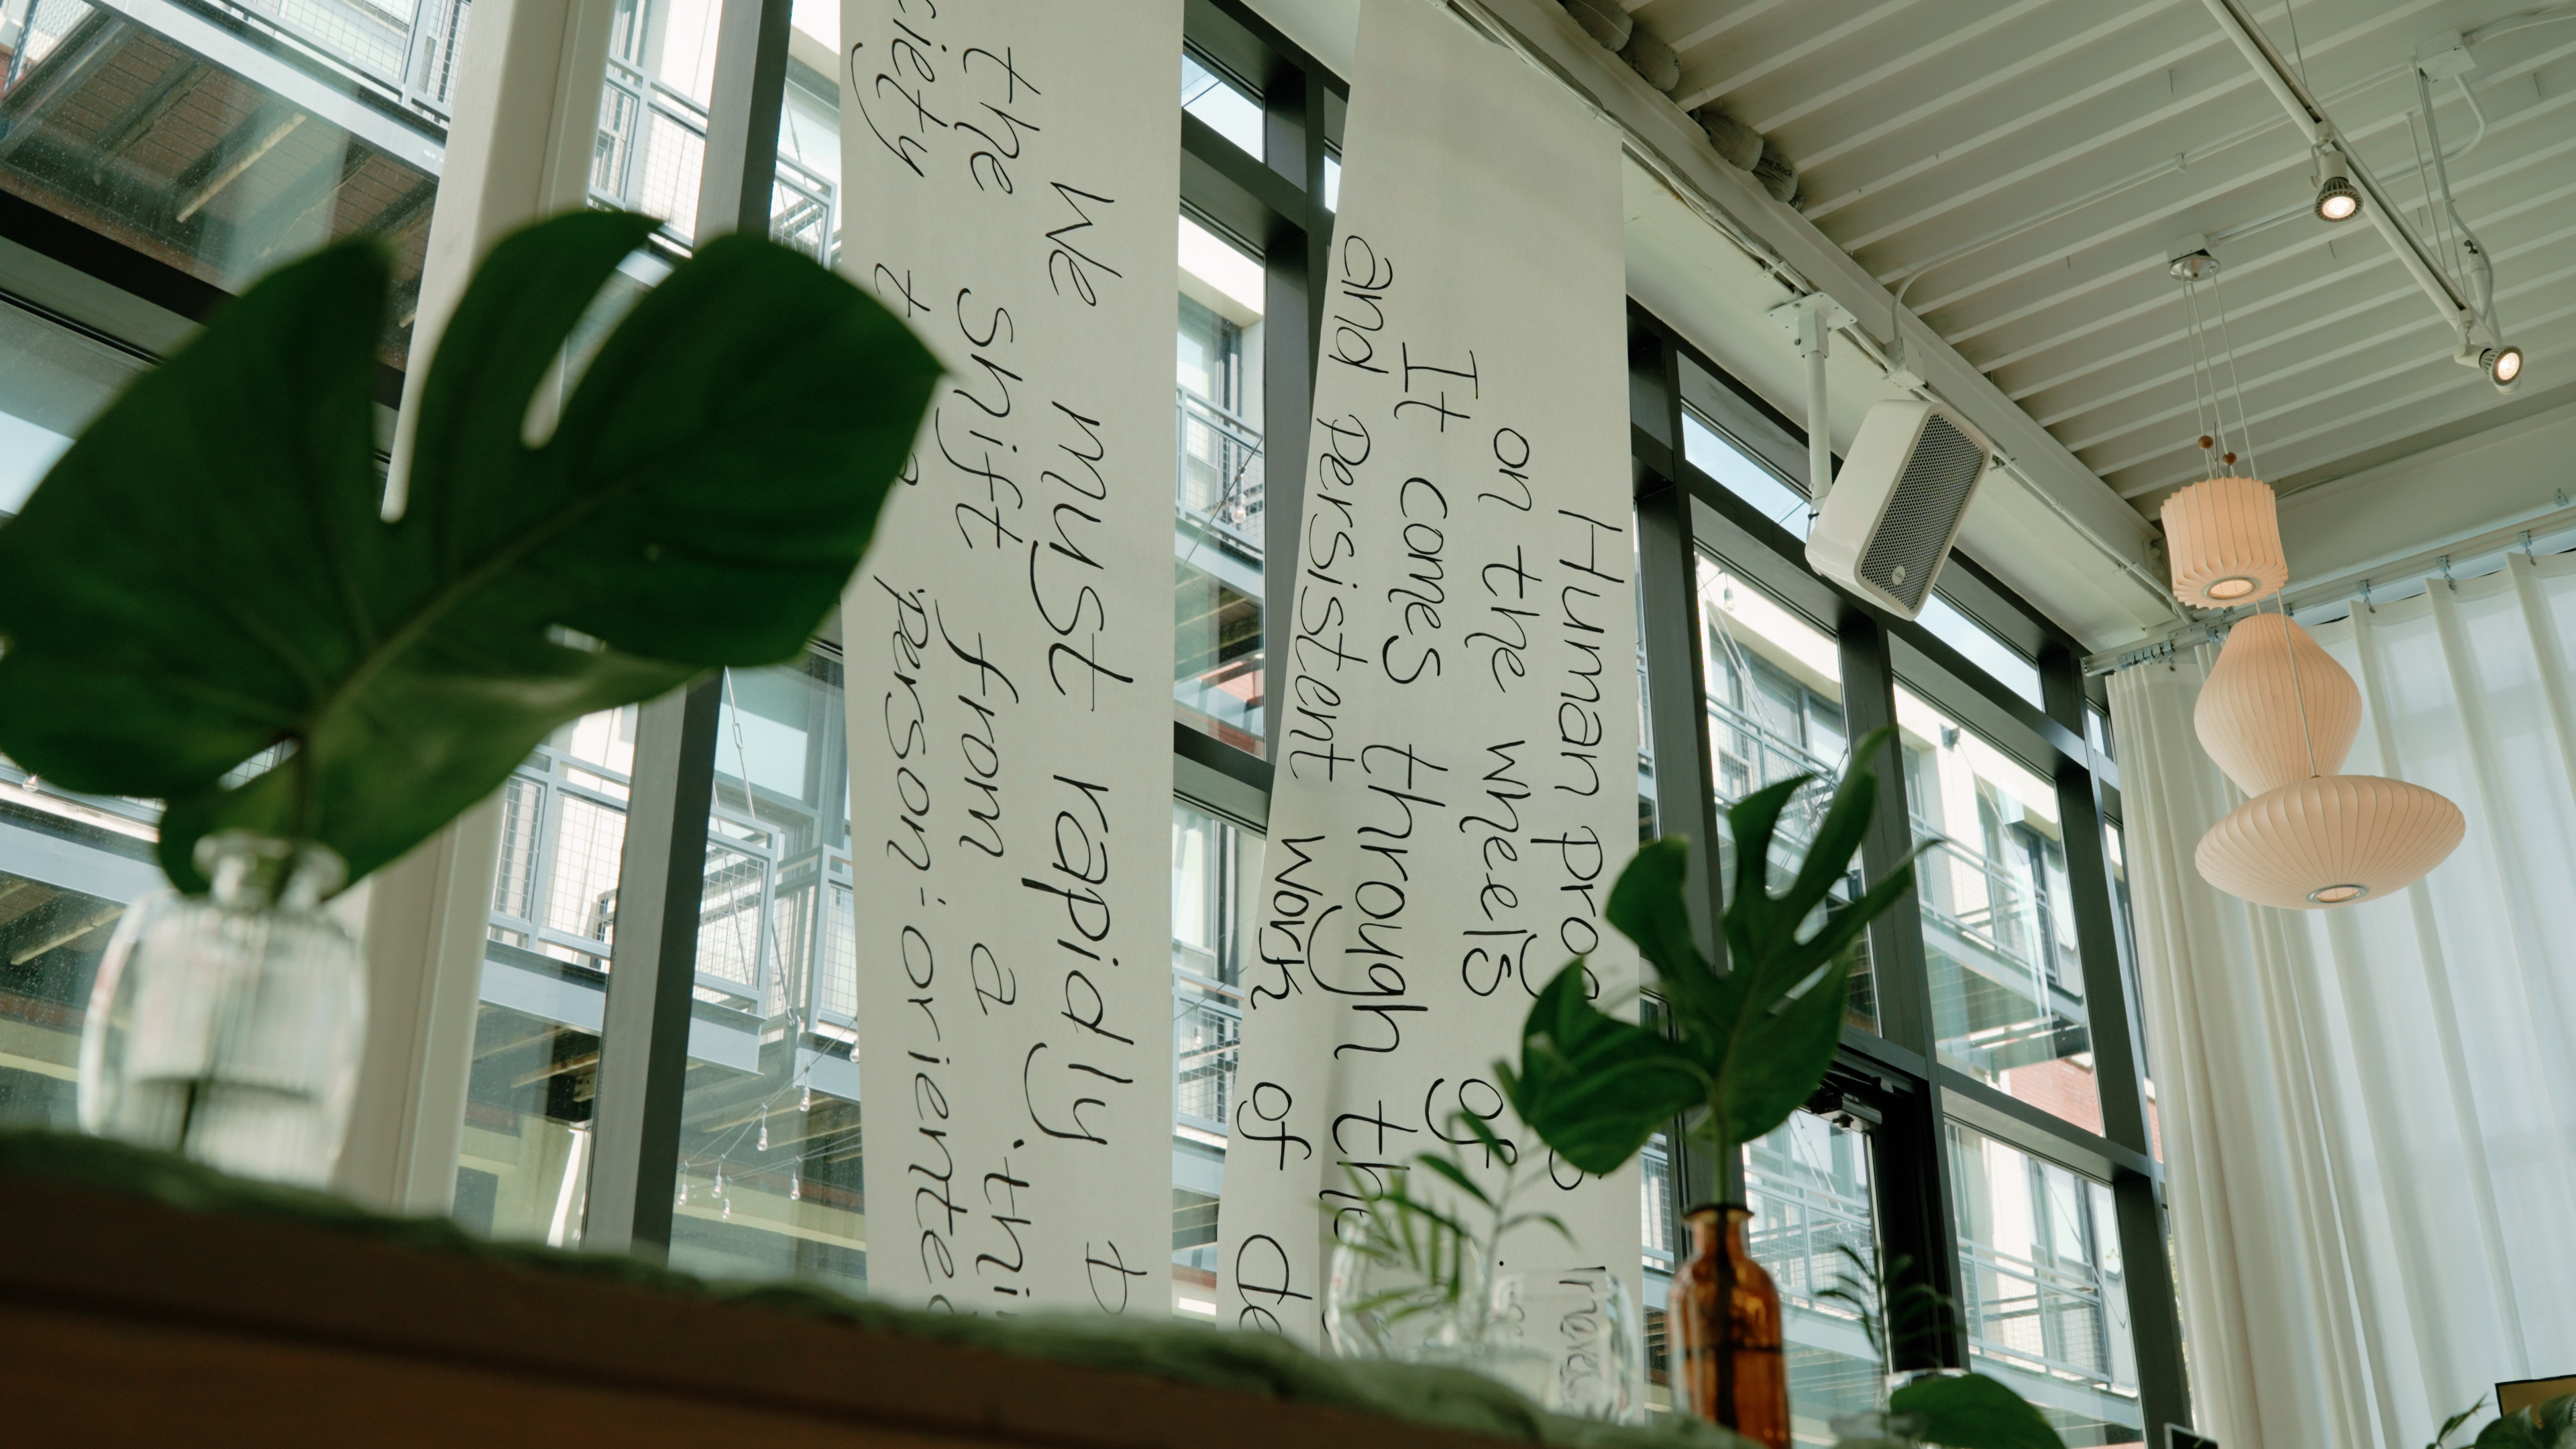 We must rapidly b
the shift from a "thi
ciety t a person-oriented
Human prog
on the wheels of
It comes through the
and persistent work of de